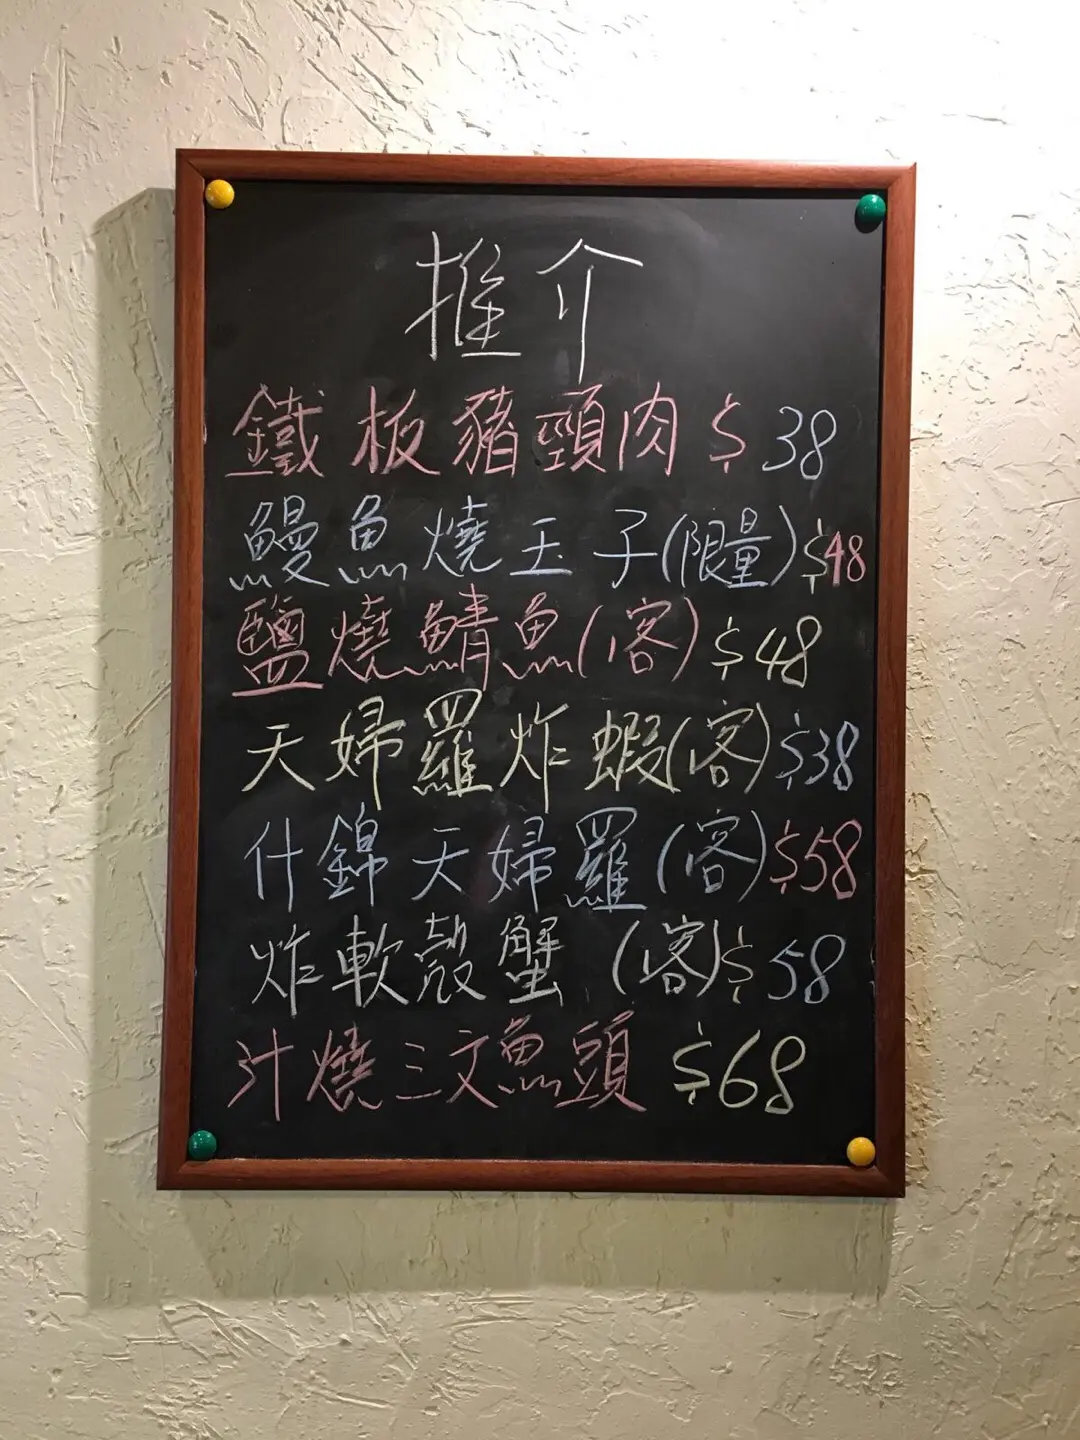 推介
鐵板豬頸肉 $38
鰻魚燒玉子(限量)$48
鹽燒鯖魚(客)$48
天婦羅炸蝦(客)$38
什錦天婦羅(客)$58
炸軟殼蟹 (客)$58
汁燒三文魚頭 $68